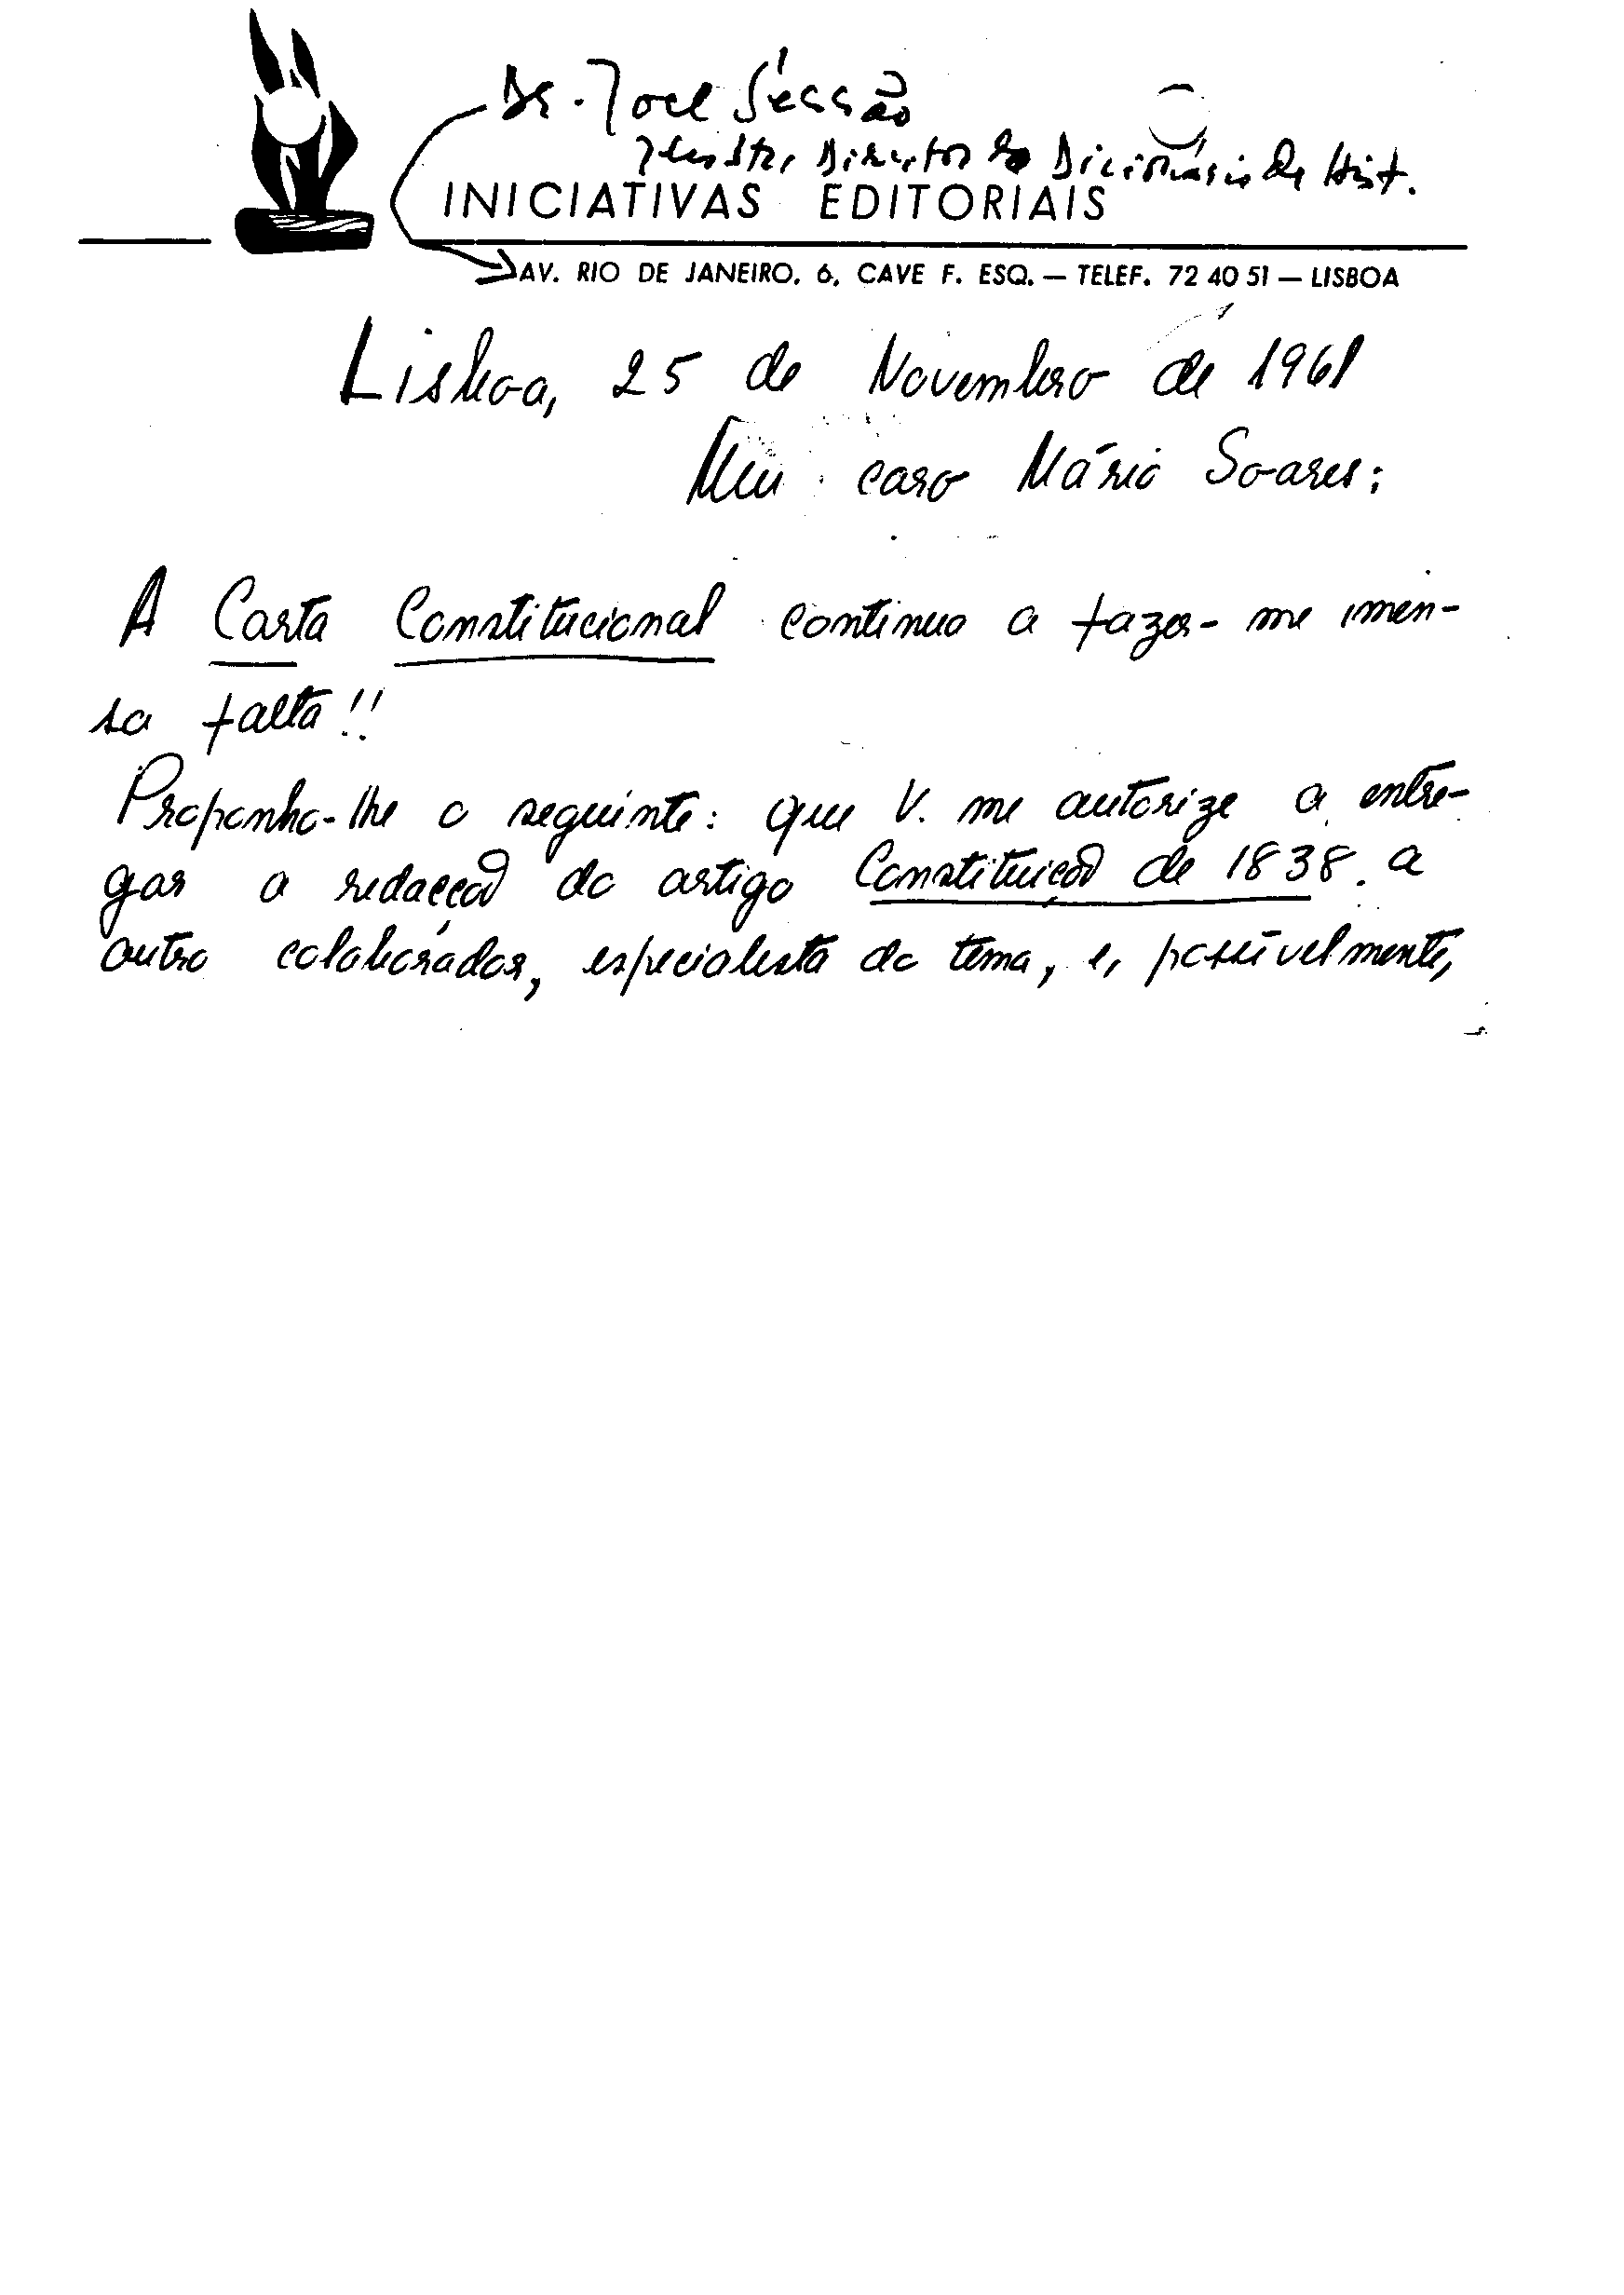 Dr. Joel Serrão
Ilustre Director do Dicionário de Hist.
INICIATIVAS EDITORIAIS
AV. RIO DE JANEIRO, 6, CAVE F. ESQ. — TELEF. 72 40 51 — LISBOA
Lisboa, 25 de Novembro de 1961
Meu caro Mário Soares:
A Carta Constitucional continua a fazer-me imen-
sa falta!!
Proponho-lhe o seguinte: que V. me autorize a entre-
gar a redacção do artigo Constituição de 1838 a
outro colaborador, especialista do tema, e, possìvelmente,